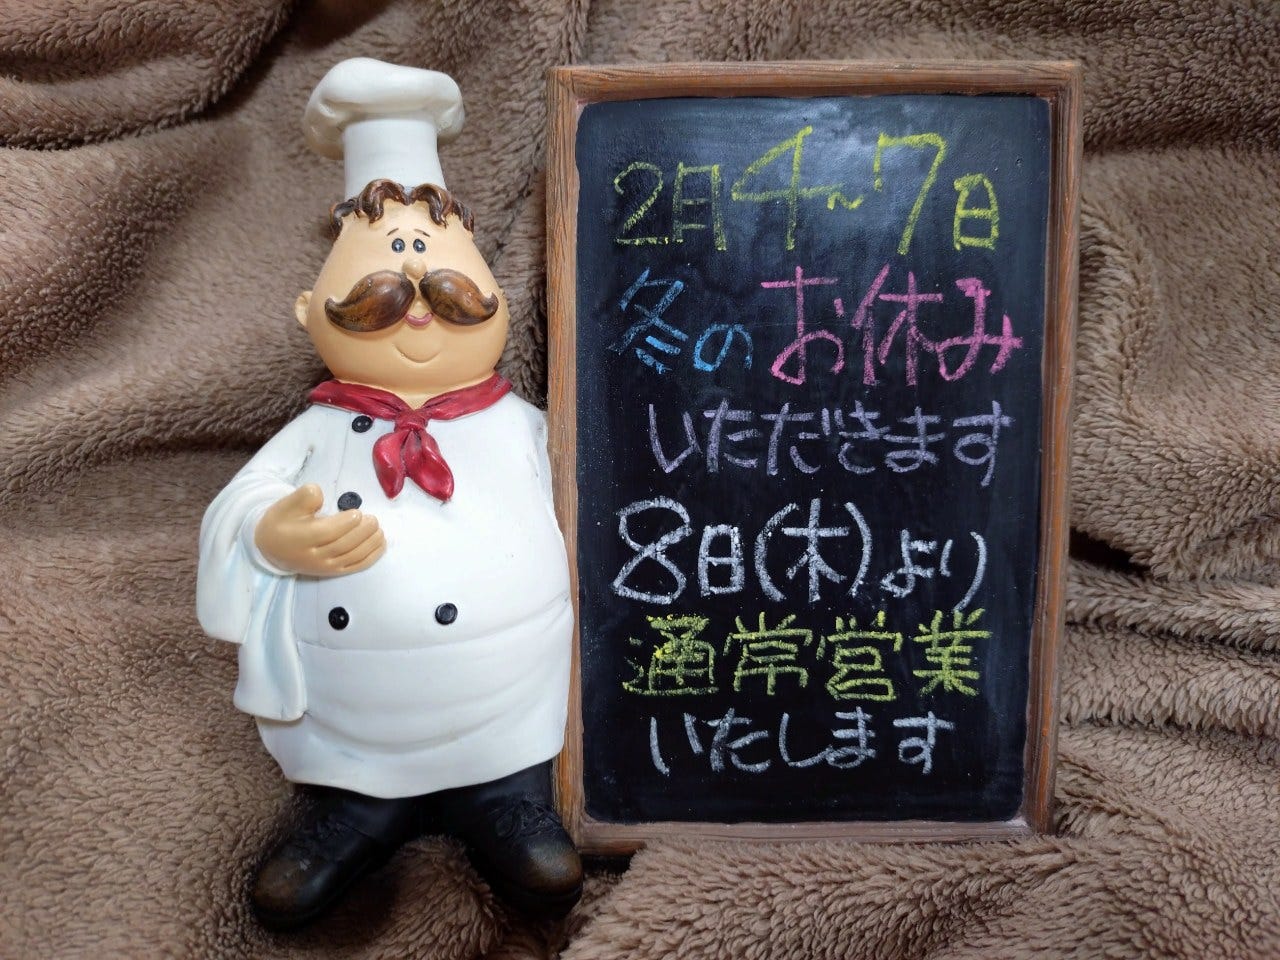 2月4~7日
冬のお休み
いただきます
8日(木)より
通常営業
いたします